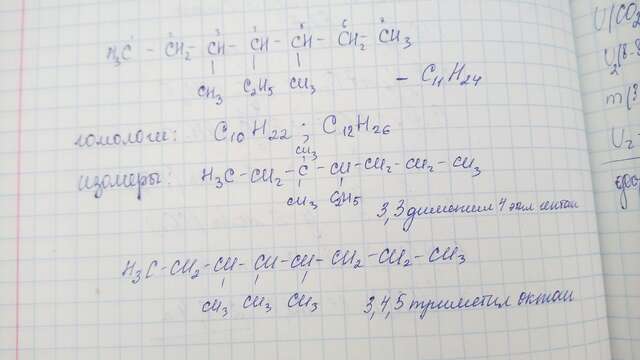 H₃C - CH₂ - CH - CH - CH - CH₂ - CH₃
CH₃ C₂H₅ CH₃ - C₁₁H₂₄
гомологи: C₁₀H₂₂ ; C₁₂H₂₆
CH₃
изомеры: H₃C - CH₂ - C - CH - CH₂ - CH₂ - CH₃
CH₃ C₂H₅
3,3 диметил 4 этил
H₃C - CH₂ - CH - CH - CH - CH₂ - CH₂ - CH₃
CH₃ CH₃ CH₃
3,4,5 триметил октан